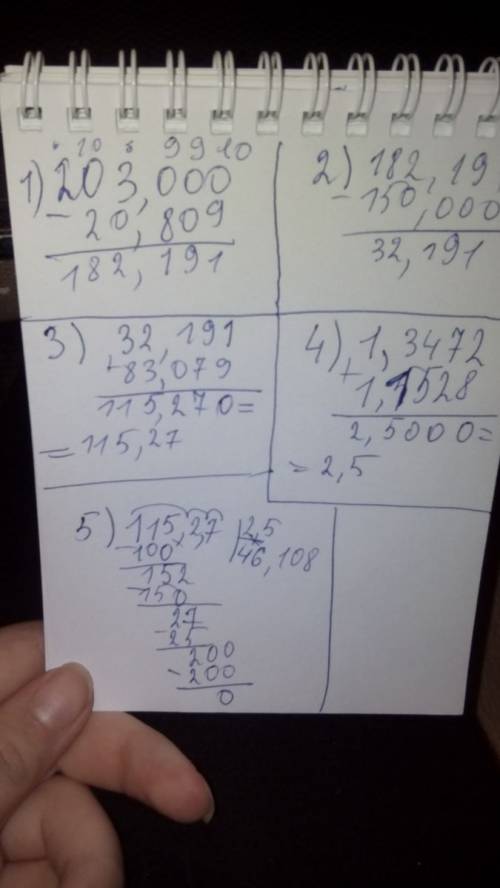 • 10 • 9 9 10
1) 203,000
- 20,809
182,191
2) 182,19
- 150,000
32,191
3) 32,191
+ 83,079
115,270=
= 115,27
4) 1,3472
+ 1,1528
2,5000=
= 2,5
5) 115,27 | 2,5
-100 46,108
152
-150
27
- 25
200
- 200
0